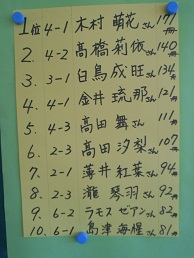 1位 4-1 木村 萌花さん 177冊
2. 4-2 高橋 莉依さん 140冊
3. 3-1 白鳥 成旺さん 134冊
4. 4-1 金井 琉那さん 121冊
5. 4-3 高田 舞さん 111冊
6. 2-3 高田 汐梨さん 107冊
7. 2-1 薄井 紅葉さん 94冊
8. 2-3 瀧 琴羽さん 92冊
9. 6-2 ラモス ゼアンさん 82冊
10. 6-1 島津 海惺さん 81冊